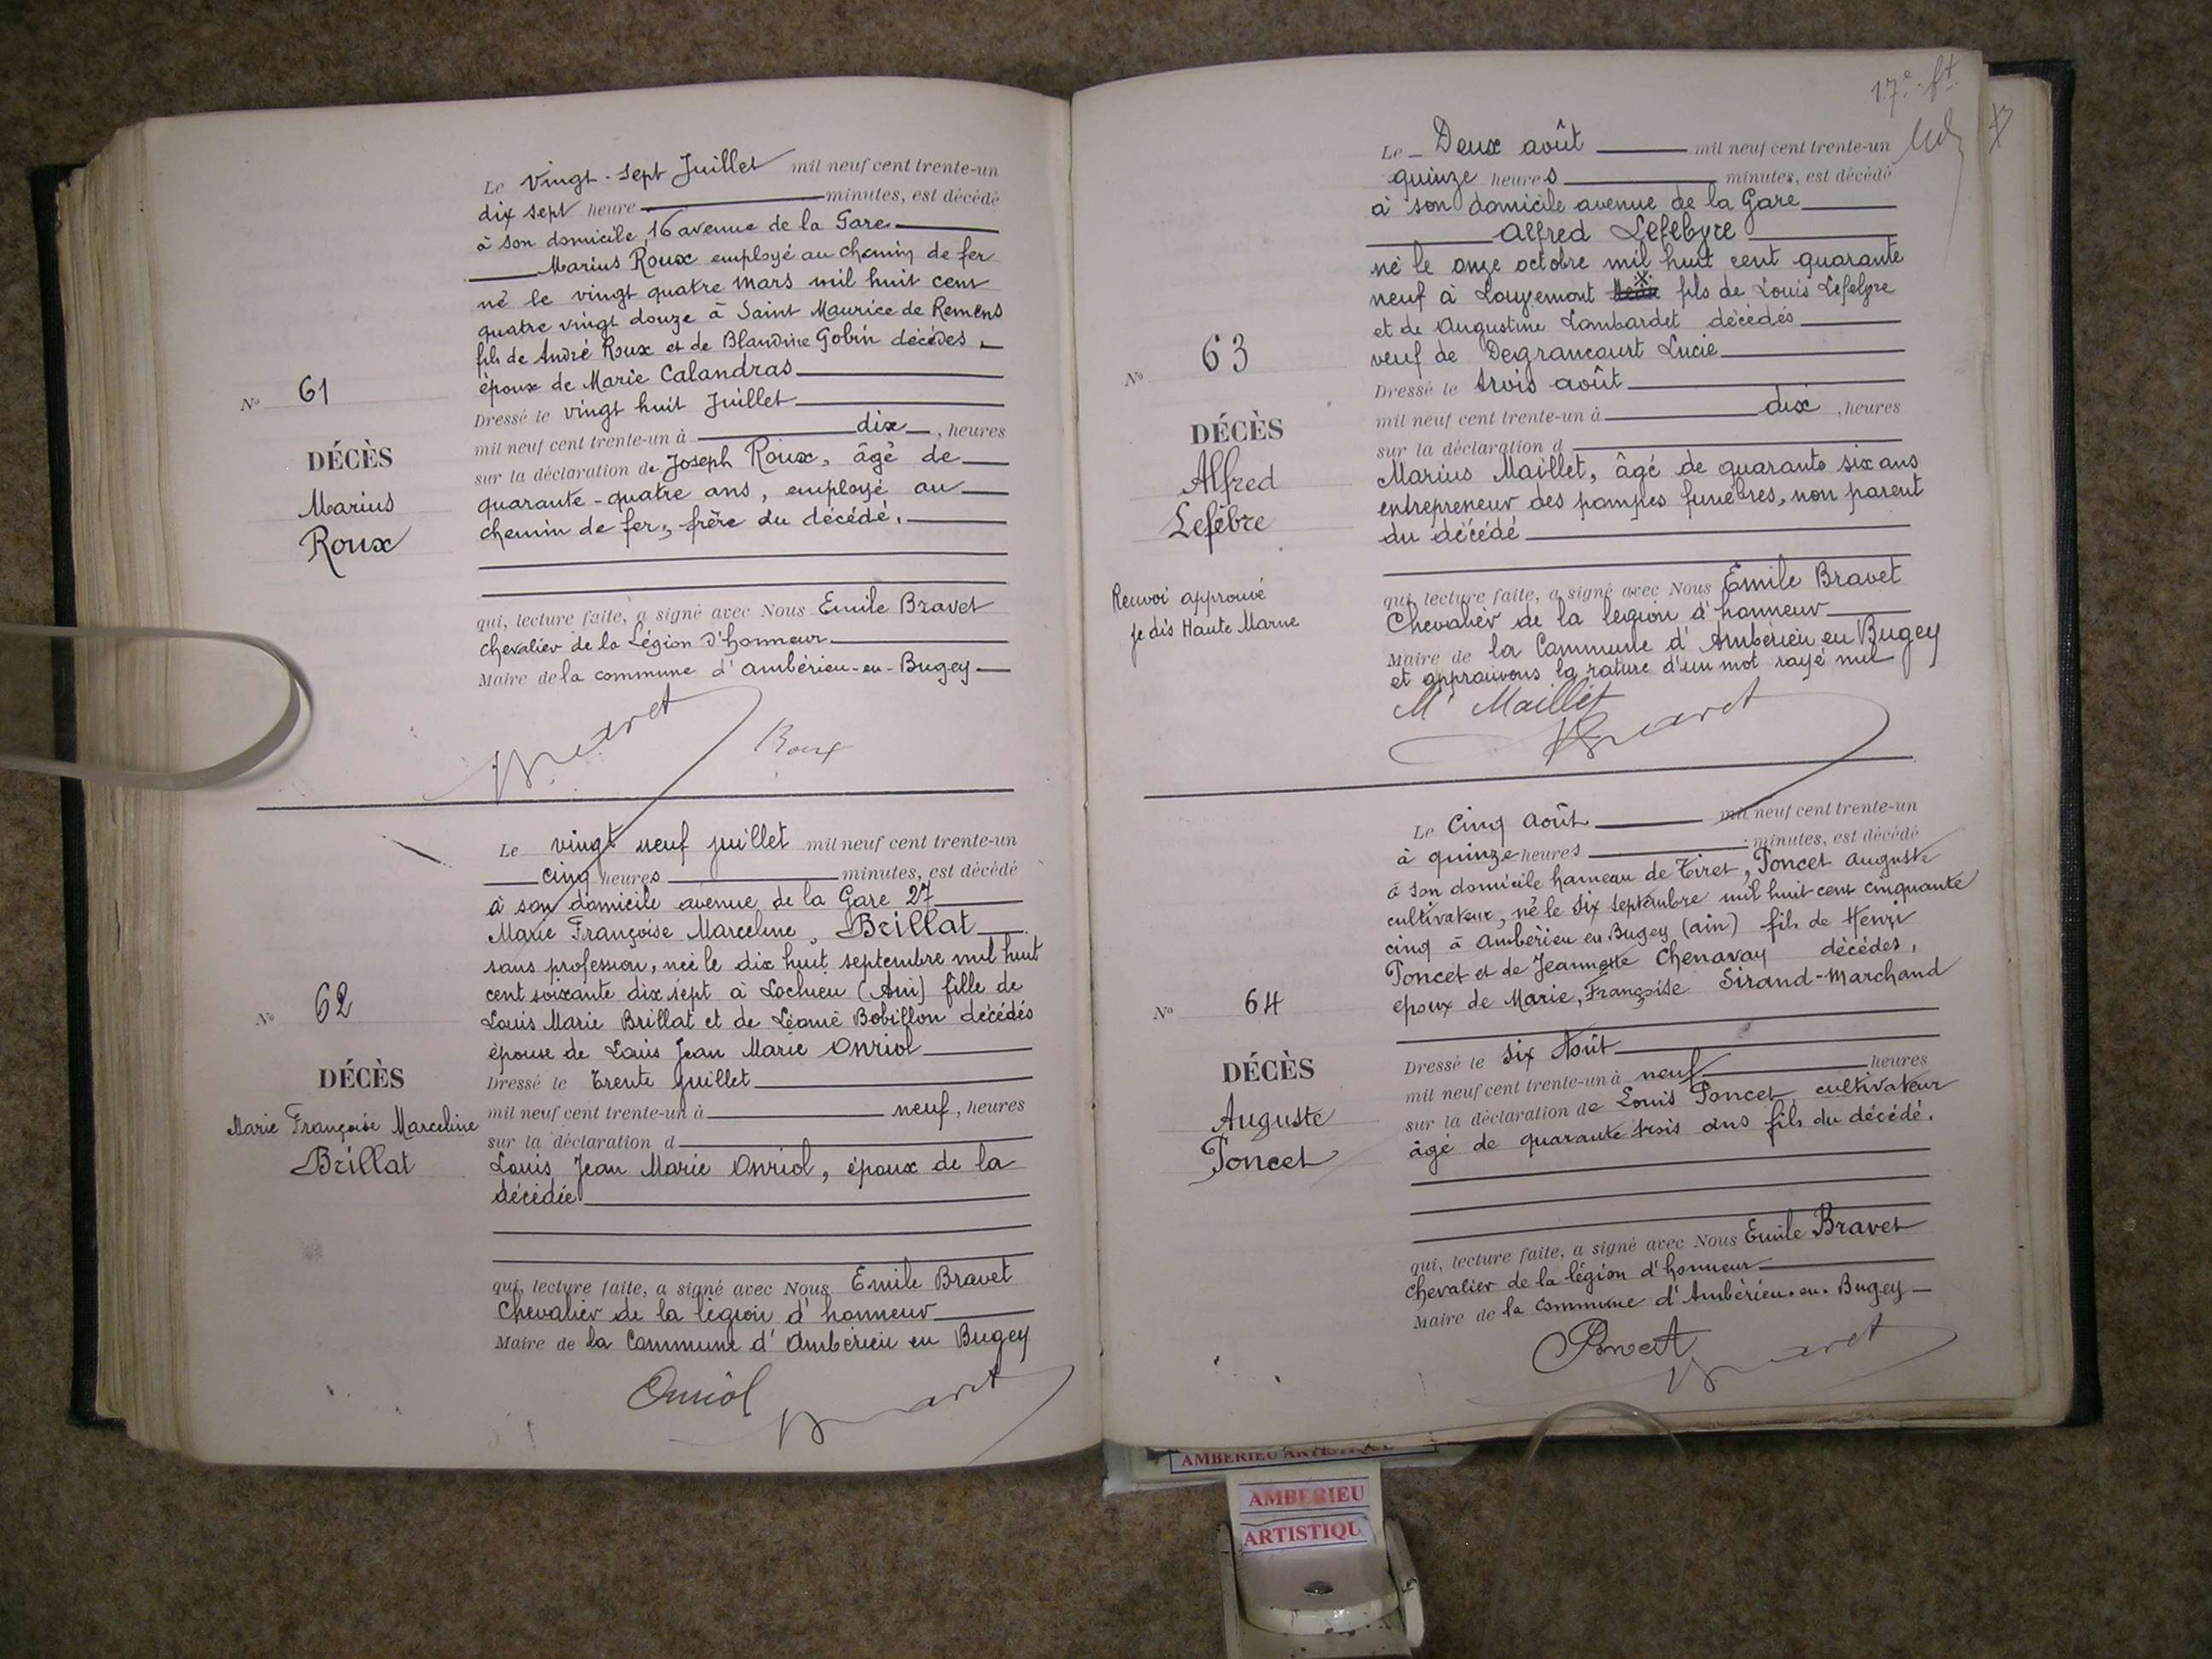 Le vingt-sept Juillet mil neuf cent trente-un
dix sept heure minutes, est décédé
à son domicile, 16 avenue de la Gare
Marius Roux employé au chemin de fer
né le vingt quatre mars mil huit cent
quatre vingt douze à Saint Maurice de Remens
fils de André Roux et de Blandine Gobin décédés,
époux de Marie Calandras
Dressé le vingt huit Juillet
mil neuf cent trente-un à dix, heures
sur la déclaration de Joseph Roux, âgé de
quarante-quatre ans, employé au
chemin de fer, frère du décédé.
qui, lecture faite, a signé avec Nous Emile Bravet
chevalier de la Légion d'honneur
Maire de la commune d'ambérieu-en-Bugey
Bravet Roux
No 61
DÉCÈS
Marius
Roux
Le vingt neuf juillet mil neuf cent trente-un
cinq heures minutes, est décédé
à son domicile avenue de la Gare 27
Marie Françoise Marceline, Brillat
sans profession, née le dix huit septembre mil huit
cent soixante dix sept à Lochieu (Ain) fille de
Louis Marie Brillat et de Léonie Bobillon décédés
épouse de Louis Jean Marie Onriol
Dressé le Trente juillet
mil neuf cent trente-un à neuf, heures
sur la déclaration d
Louis Jean Marie Onriol, époux de la
décédée
qui, lecture faite, a signé avec Nous Emile Bravet
Chevalier de la légion d'honneur
Maire de la Commune d'Ambérieu en Bugey
Onriol Bravet
No 62
DÉCÈS
Marie Françoise Marceline
Brillat
17e ft.
Le Deux août mil neuf cent trente-un
quinze heures minutes, est décédé
à son domicile avenue de la Gare
Alfred Lefebvre
né le onze octobre mil huit cent quarante
neuf à fils de Louis Lefebvre
et de Augustine Lombardet décédés
veuf de Degrancourt Lucie
Dressé le trois août
mil neuf cent trente-un à dix, heures
sur la déclaration d
Marius Maillet, âgé de quarante six ans
entrepreneur des pompes funèbres, non parent
du décédé
qui, lecture faite, a signé avec Nous Emile Bravet
Chevalier de la légion d'honneur
Maire de la Commune d'Ambérieu en Bugey
et approuvons la rature d'un mot rayé nul
M. Maillet
Bravet
No 63
DÉCÈS
Alfred
Lefèbre
Renvoi approuvé
je dis Haute Marne
Le Cinq Août mil neuf cent trente-un
à quinze heures minutes, est décédé
à son domicile hameau de Tiret, Poncet Auguste
cultivateur, né le six septembre mil huit cent cinquante
cinq à Ambérieu en Bugey (ain) fils de Henri
Poncet et de Jeannette Chenavay décédés,
époux de Marie, Françoise Sirand-Marchand
Dressé le six Août
mil neuf cent trente-un à neuf heures
sur la déclaration de Louis Poncet cultivateur
âgé de quarante trois ans fils du décédé.
qui, lecture faite, a signé avec Nous Emile Bravet
chevalier de la légion d'honneur
Maire de la commune d'Ambérieu.en.Bugey
Poncet Bravet
No 64
DÉCÈS
Auguste
Poncet
AMBERIEU ARTISTIQUE
AMBERIEU
ARTISTIQU